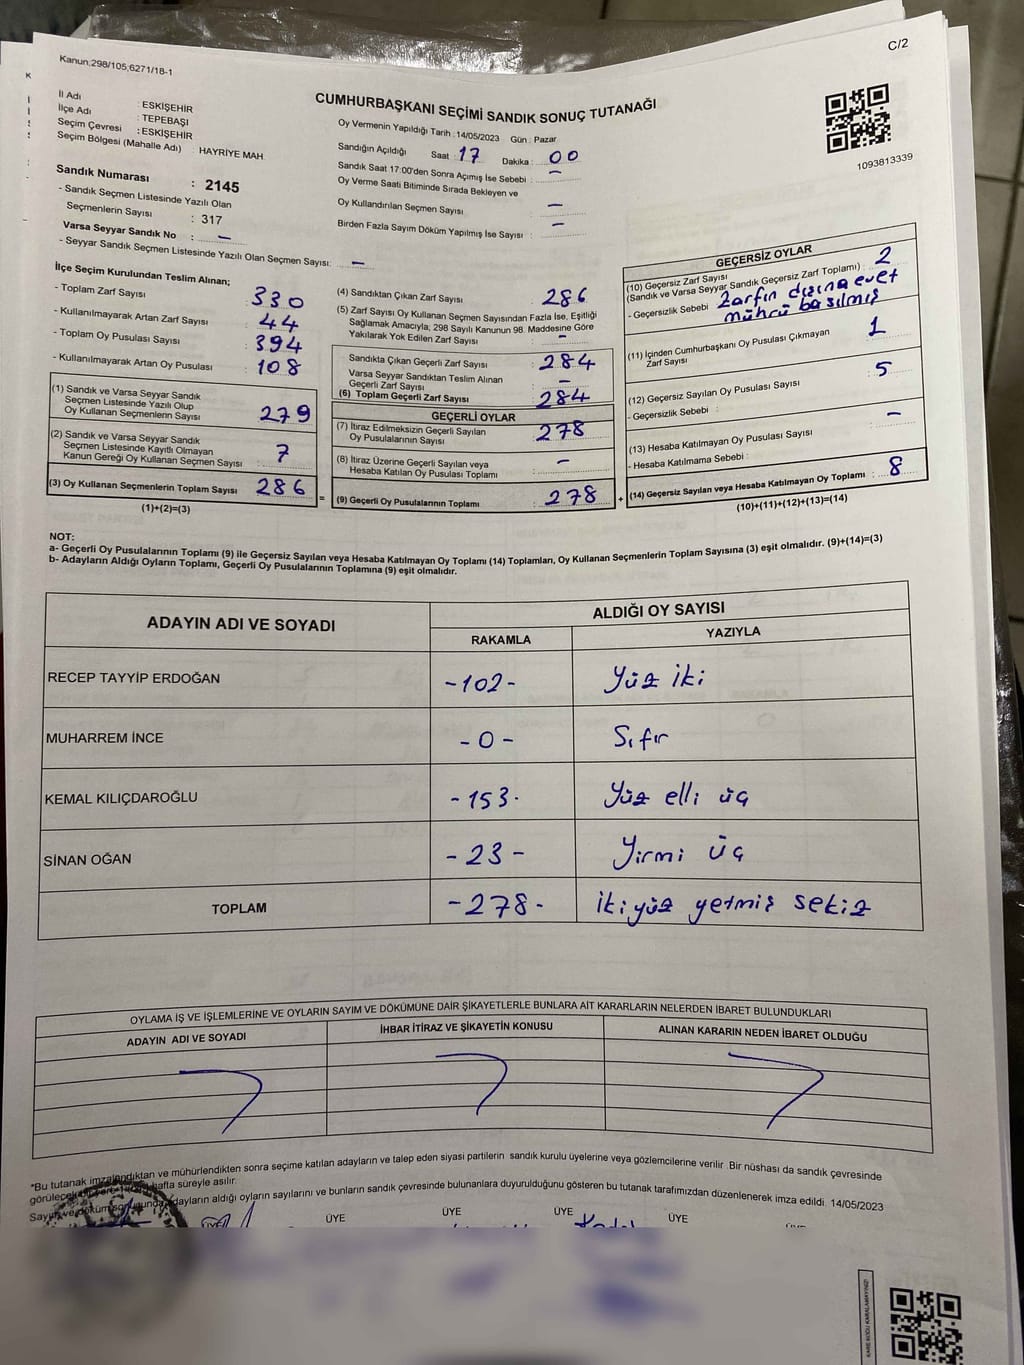 Kanun;298/105,6271/18-1
C/2
CUMHURBAŞKANI SEÇİMİ SANDIK SONUÇ TUTANAĞI
İl Adı : ESKİŞEHİR
İlçe Adı : TEPEBAŞI
Seçim Çevresi : ESKİŞEHİR
Seçim Bölgesi (Mahalle Adı) : HAYRİYE MAH
Sandık Numarası : 2145
- Sandık Seçmen Listesinde Yazılı Olan
Seçmenlerin Sayısı : 317
Varsa Seyyar Sandık No : –
- Seyyar Sandık Seçmen Listesinde Yazılı Olan Seçmen Sayısı: –
Oy Vermenin Yapıldığı Tarih : 14/05/2023 Gün : Pazar
Sandığın Açıldığı Saat : 17 Dakika : 00
Sandık Saat 17:00'den Sonra Açımış İse Sebebi : –
Oy Verme Saati Bitiminde Sırada Bekleyen ve
Oy Kullandırılan Seçmen Sayısı : –
Birden Fazla Sayım Döküm Yapılmış İse Sayısı : –
1093813339
İlçe Seçim Kurulundan Teslim Alınan;
- Toplam Zarf Sayısı : 330
- Kullanılmayarak Artan Zarf Sayısı : 44
- Toplam Oy Pusulası Sayısı : 394
- Kullanılmayarak Artan Oy Pusulası : 108
(1) Sandık ve Varsa Seyyar Sandık
Seçmen Listesinde Yazılı Olup
Oy Kullanan Seçmenlerin Sayısı : 279
(2) Sandık ve Varsa Seyyar Sandık
Seçmen Listesinde Kayıtlı Olmayan
Kanun Gereği Oy Kullanan Seçmen Sayısı : 7
(3) Oy Kullanan Seçmenlerin Toplam Sayısı : 286
(1)+(2)=(3)
(4) Sandıktan Çıkan Zarf Sayısı : 286
(5) Zarf Sayısı Oy Kullanan Seçmen Sayısından Fazla İse, Eşitliği
Sağlamak Amacıyla; 298 Sayılı Kanunun 98. Maddesine Göre
Yakılarak Yok Edilen Zarf Sayısı : –
Sandıkta Çıkan Geçerli Zarf Sayısı : 284
Varsa Seyyar Sandıktan Teslim Alınan
Geçerli Zarf Sayısı : –
(6) Toplam Geçerli Zarf Sayısı : 284
GEÇERLİ OYLAR
(7) İtiraz Edilmeksizin Geçerli Sayılan
Oy Pusulalarının Sayısı : 278
(8) İtiraz Üzerine Geçerli Sayılan veya
Hesaba Katılan Oy Pusulası Toplamı : –
= (9) Geçerli Oy Pusulalarının Toplamı : 278 +
GEÇERSİZ OYLAR
(10) Geçersiz Zarf Sayısı
(Sandık ve Varsa Seyyar Sandık Geçersiz Zarf Toplamı) : 2
- Geçersizlik Sebebi : Zarfın dışına evet
mührü basılmış
(11) İçinden Cumhurbaşkanı Oy Pusulası Çıkmayan
Zarf Sayısı : 1
(12) Geçersiz Sayılan Oy Pusulası Sayısı : 5
- Geçersizlik Sebebi :
(13) Hesaba Katılmayan Oy Pusulası Sayısı : –
- Hesaba Katılmama Sebebi :
(14) Geçersiz Sayılan veya Hesaba Katılmayan Oy Toplamı : 8
(10)+(11)+(12)+(13)=(14)
NOT:
a- Geçerli Oy Pusulalarının Toplamı (9) ile Geçersiz Sayılan veya Hesaba Katılmayan Oy Toplamı (14) Toplamları, Oy Kullanan Seçmenlerin Toplam Sayısına (3) eşit olmalıdır. (9)+(14)=(3)
b- Adayların Aldığı Oyların Toplamı, Geçerli Oy Pusulalarının Toplamına (9) eşit olmalıdır.
ADAYIN ADI VE SOYADI ALDIĞI OY SAYISI
RAKAMLA YAZIYLA
RECEP TAYYİP ERDOĞAN -102- Yüz iki
MUHARREM İNCE -0- Sıfır
KEMAL KILIÇDAROĞLU -153- Yüz elli üç
SİNAN OĞAN -23- Yirmi üç
TOPLAM -278- iki yüz yetmiş sekiz
OYLAMA İŞ VE İŞLEMLERİNE VE OYLARIN SAYIM VE DÖKÜMÜNE DAİR ŞİKAYETLERLE BUNLARA AİT KARARLARIN NELERDEN İBARET BULUNDUKLARI
ADAYIN ADI VE SOYADI İHBAR İTİRAZ VE ŞİKAYETİN KONUSU ALINAN KARARIN NEDEN İBARET OLDUĞU
*Bu tutanak imzalandıktan ve mühürlendikten sonra seçime katılan adayların ve talep eden siyasi partilerin sandık kurulu üyelerine veya gözlemcilerine verilir. Bir nüshası da sandık çevresinde
hafta süreyle asılır.
adayların aldığı oyların sayılarını ve bunların sandık çevresinde bulunanlara duyurulduğunu gösteren bu tutanak tarafımızdan düzenlenerek imza edildi. 14/05/2023
ÜYE ÜYE ÜYE ÜYE ÜYE